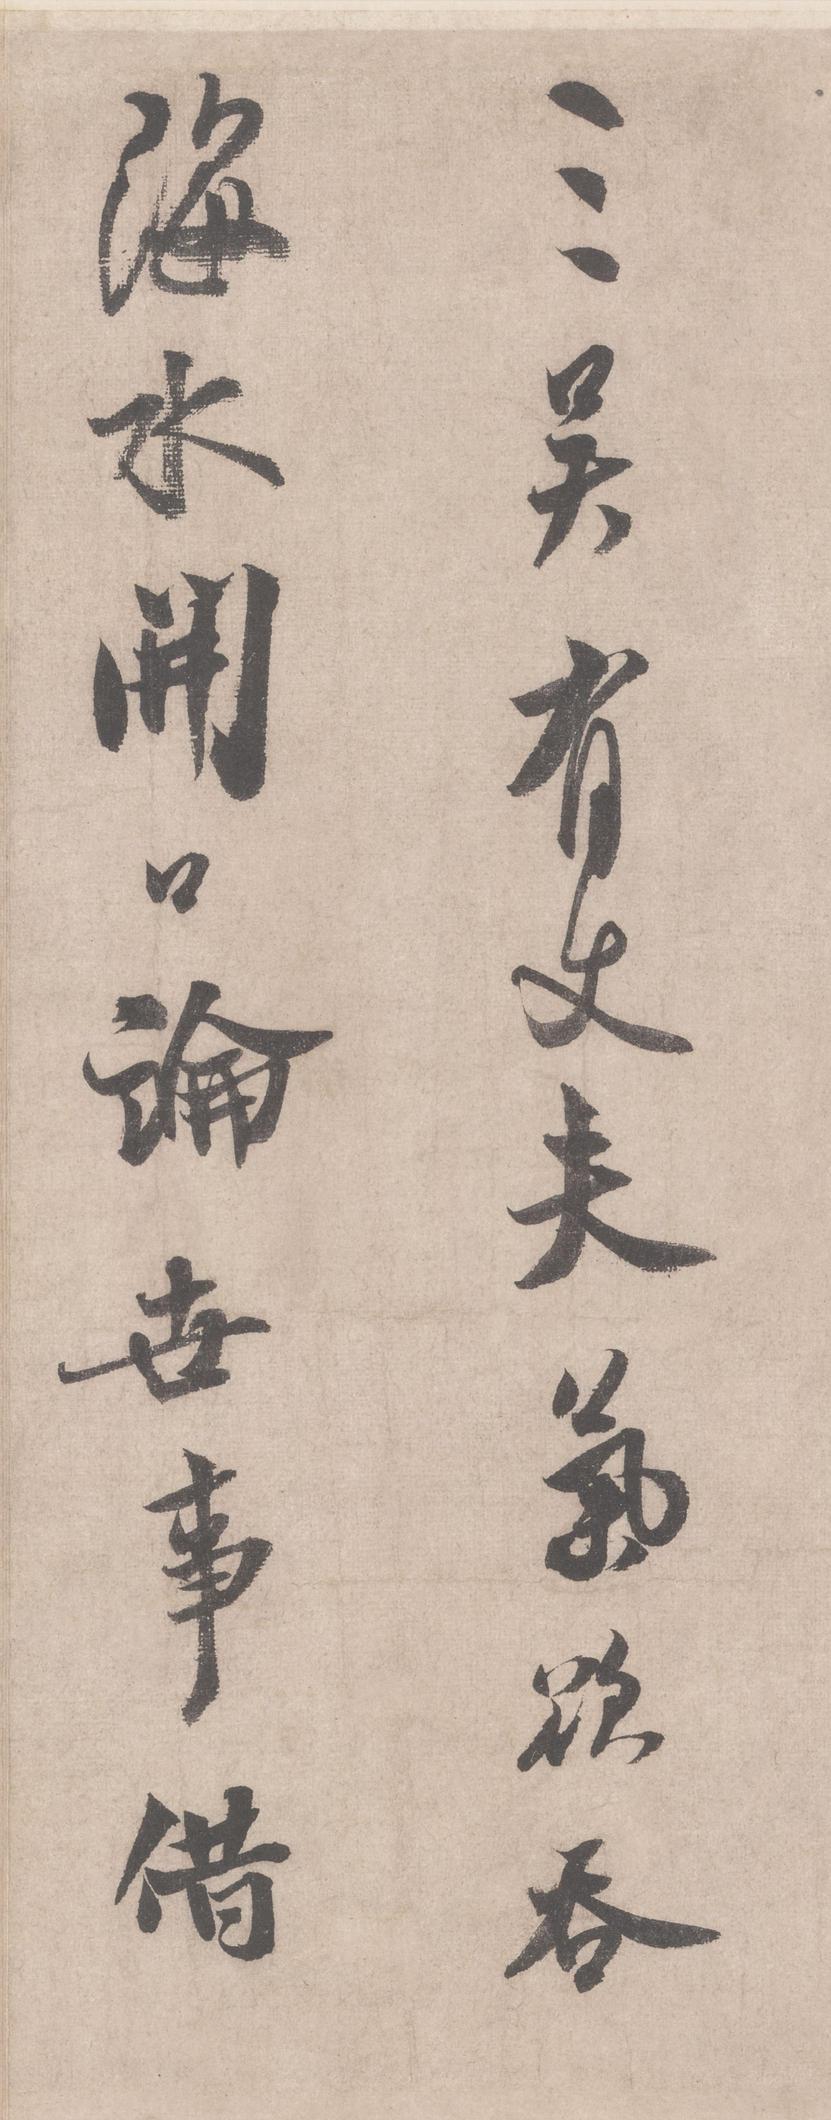 三吴有丈夫氣欲吞
海水開口論世事借